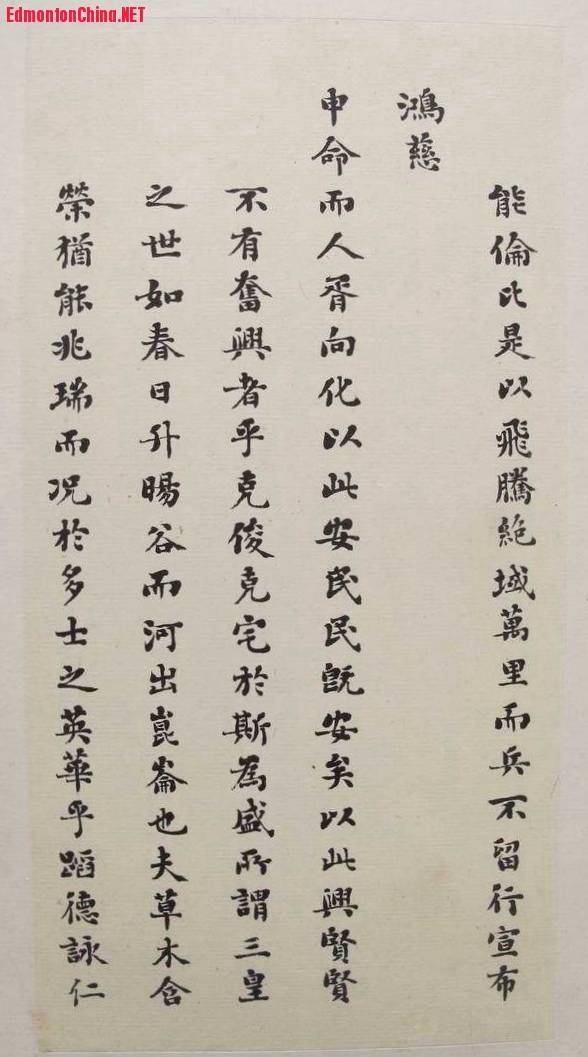 EdmontonChina.NET
能倫比是以飛騰絶域萬里而兵不留行宣布
鴻慈
申命而人胥向化以此安民民既安矣以此興賢賢
不有奮興者乎克俊克宅於斯為盛所謂三皇
之世如春日升暘谷而河出崑崙也夫草木含
榮猶能兆瑞而况於多士之英華乎蹈德詠仁